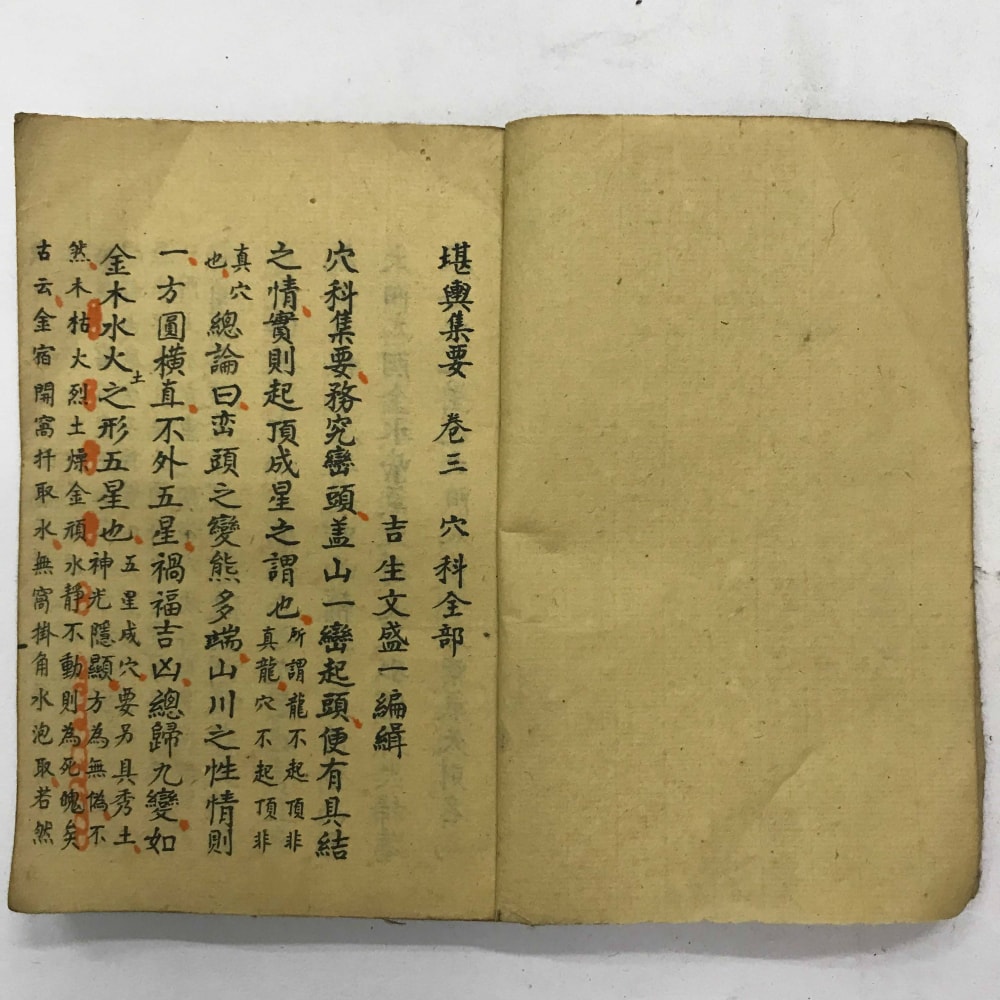 堪輿集要 卷三 穴科全部
吉生文盛一編緝
穴科集要務究巒頭盖山一巒起頭便有具結
之情實則起頂成星之謂也
所謂龍不起頂非
真龍穴不起頂非
真穴
也
總論曰峦頭之變熊多端山川之性情則
一方圓橫直不外五星禍福吉凶總歸九變如
金木水火土之形五星也
五星成穴要另具秀土
神光隱顯方為無偽不
然木枯火烈土燥金頑水靜不動則為死魄矣
古云金宿開窩扦取水無窩掛角水泡取若然